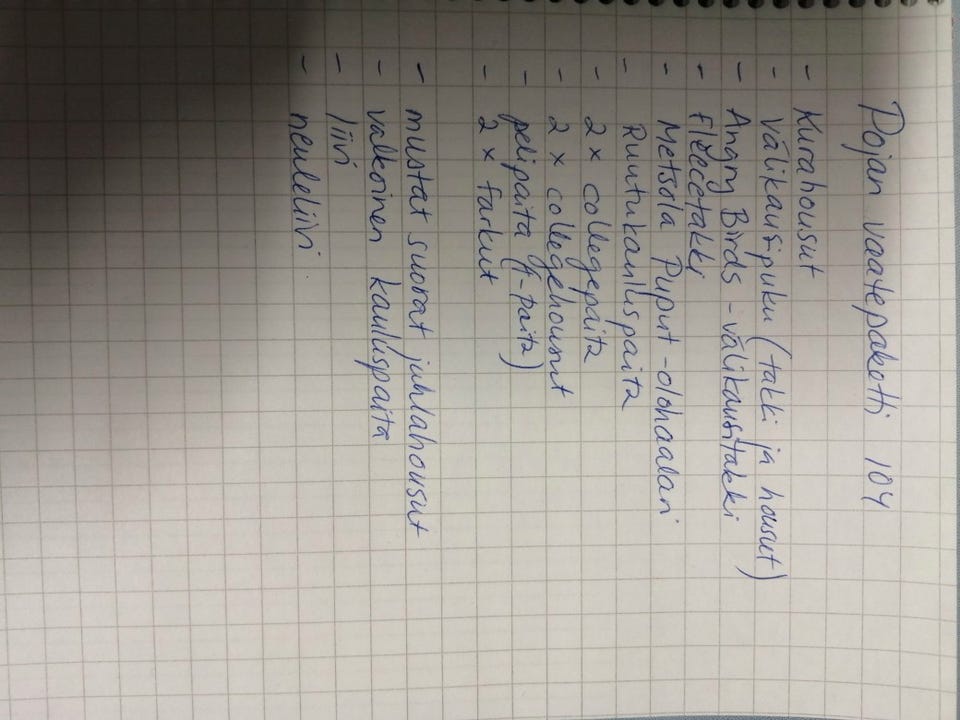 Pojan vaatepaketti 104
- Kurahousut
- välikausipuku (takki ja housut)
- Angry Birds - välikausitakki
- fleecetakki
- Metsola Puput -olohaalari
- Ruutukauluspaita
- 2 x collegepaita
- 2 x collegehousut
- pelipaita (t-paita)
- 2 x farkut
- mustat suorat juhlahousut
- valkoinen kauluspaita
- liivi
- neuleliivi